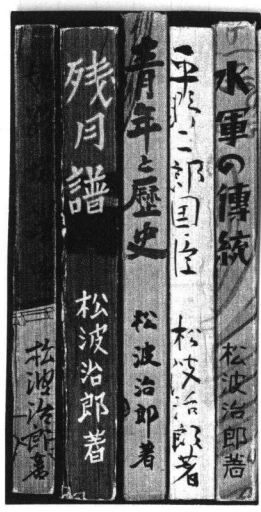 水軍の傳統 松波治郎著
平野二郎国臣 松波治郎著
青年と歴史 松波治郎著
残月譜 松波治郎著
松波治郎著